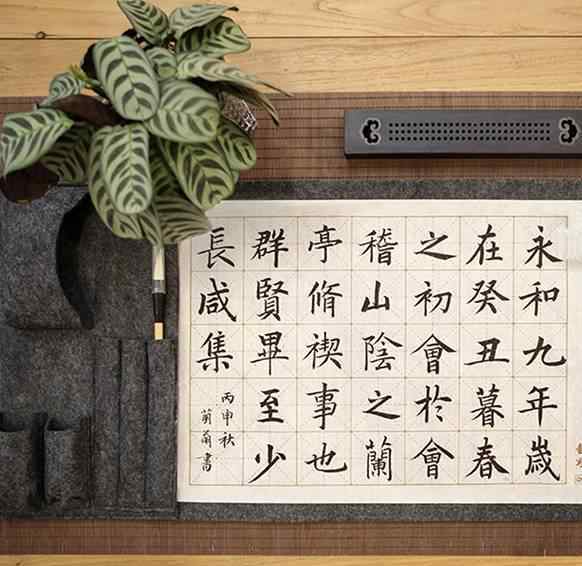 永和九年歲
在癸丑暮春
之初會於會
稽山陰之蘭
亭脩禊事也
群賢畢至少
長咸集
丙申秋
書